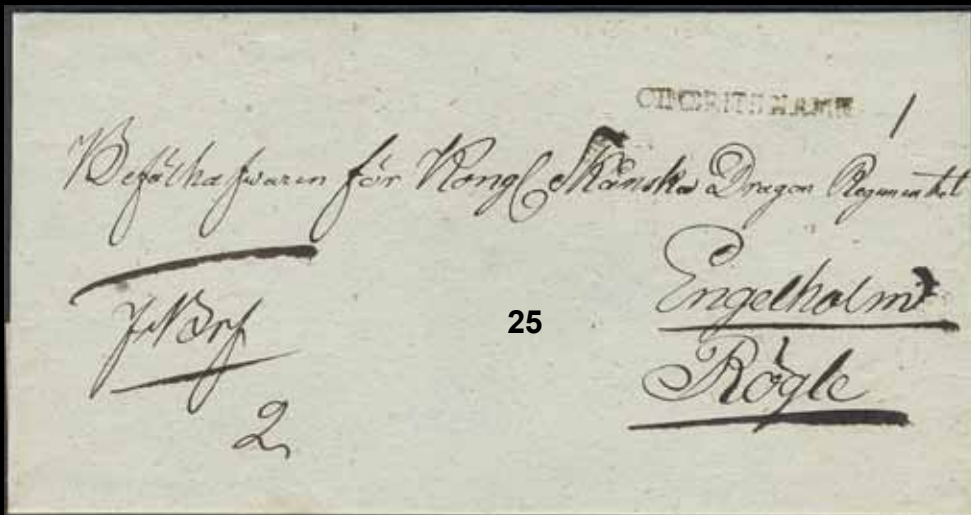 CIMBRITSHAMN
1
Befälhafwaren för Kongl Skånska Dragon Regementet
Engelholm
25
Rögle
2